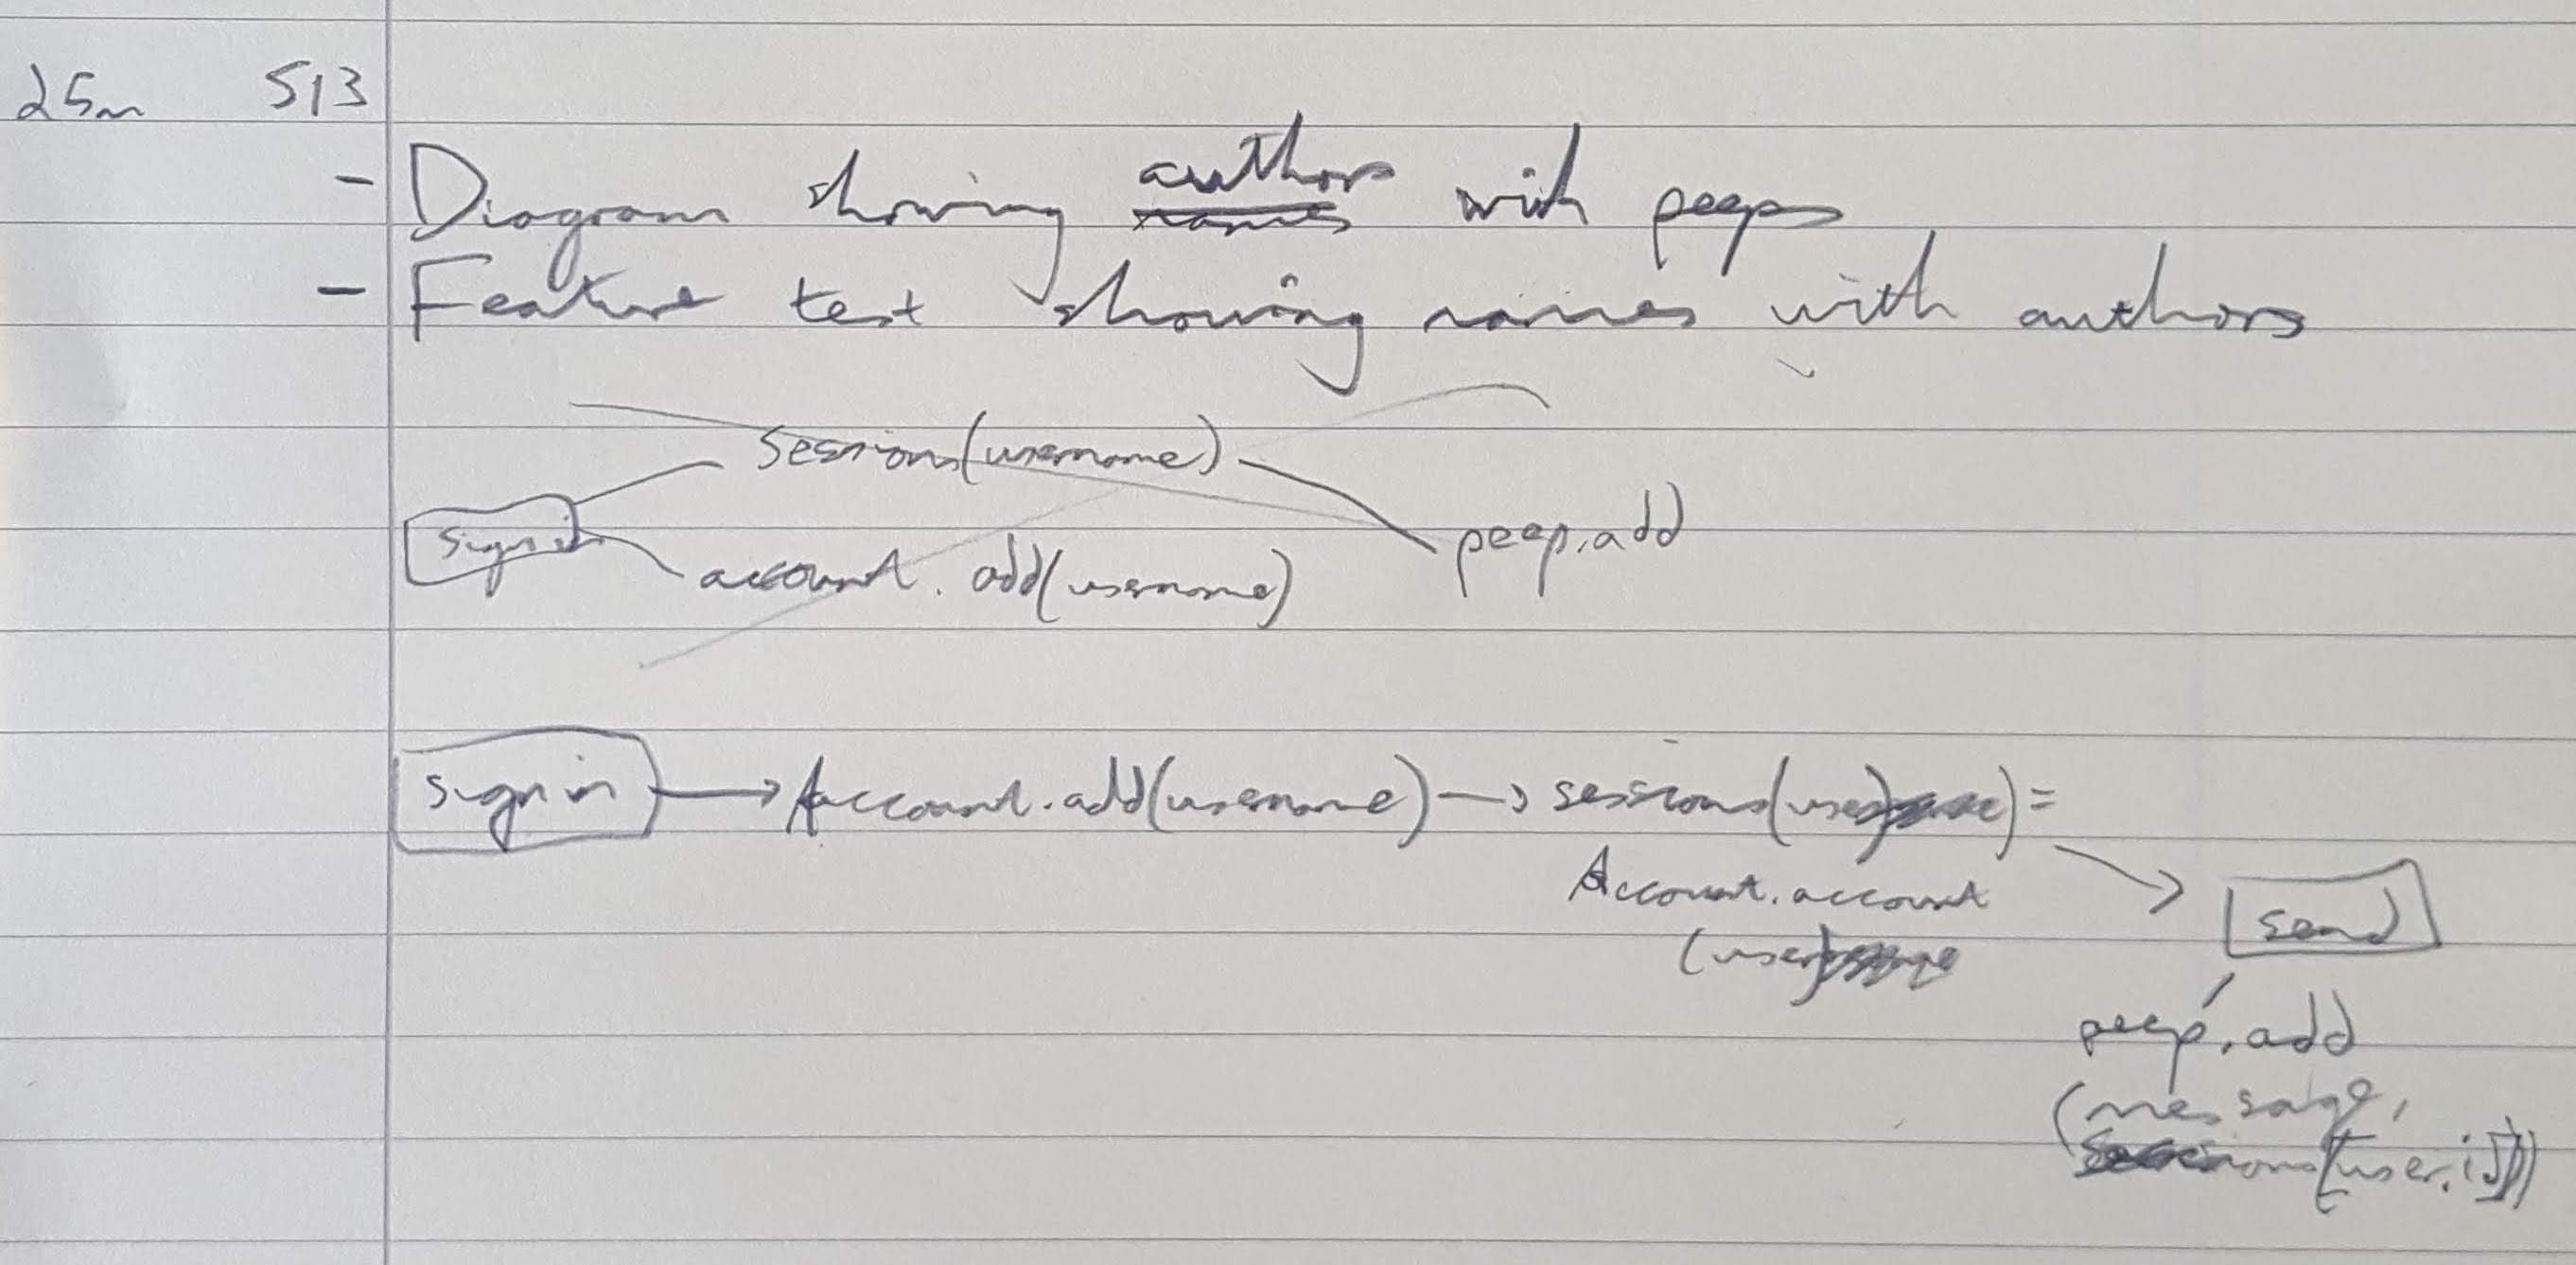 25m S13
- Diagram showing authors with peeps
- Feature test showing names with authors
sessions(username)
sign in
peep.add
account.add(username)
sign in → Account.add(username) → sessions(user) =
Account.account
(user)
send
peep.add
(message,
sessions[user.id])